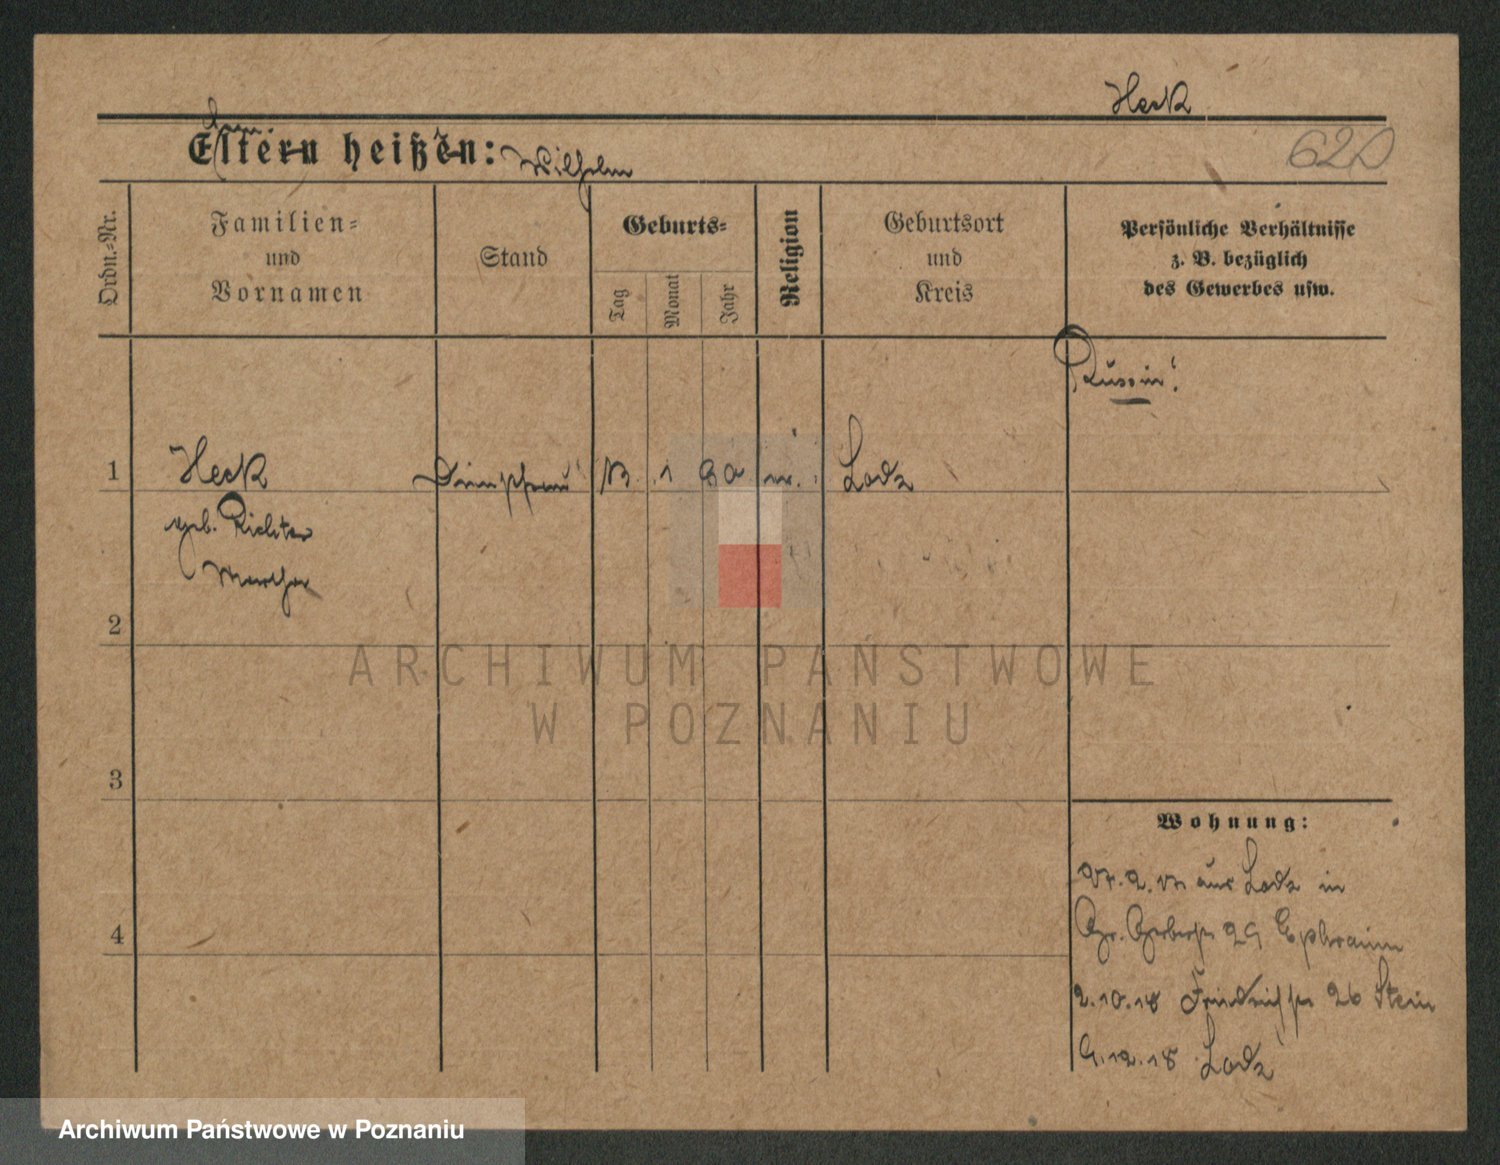 Heck
Eltern heißen: Wilhelm
620
Ordn.-Nr.
Familien-
und
Vornamen
Stand
Geburts-
Tag
Monat
Jahr
Religion
Geburtsort
und
Kreis
Persönliche Verhältnisse
z. B. bezüglich
des Gewerbes usw.
Russin!
1 Heck 1 Lodz
geb. Richter
Martha
2
3
4
ARCHIWUM PAŃSTWOWE
W POZNANIU
Wohnung:
aus Lodz in
Gr. Gerberstr 29 Ephraim
2.10.18 Friedrichstr 26 Stein
9.12.18 Lodz
Archiwum Państwowe w Poznaniu